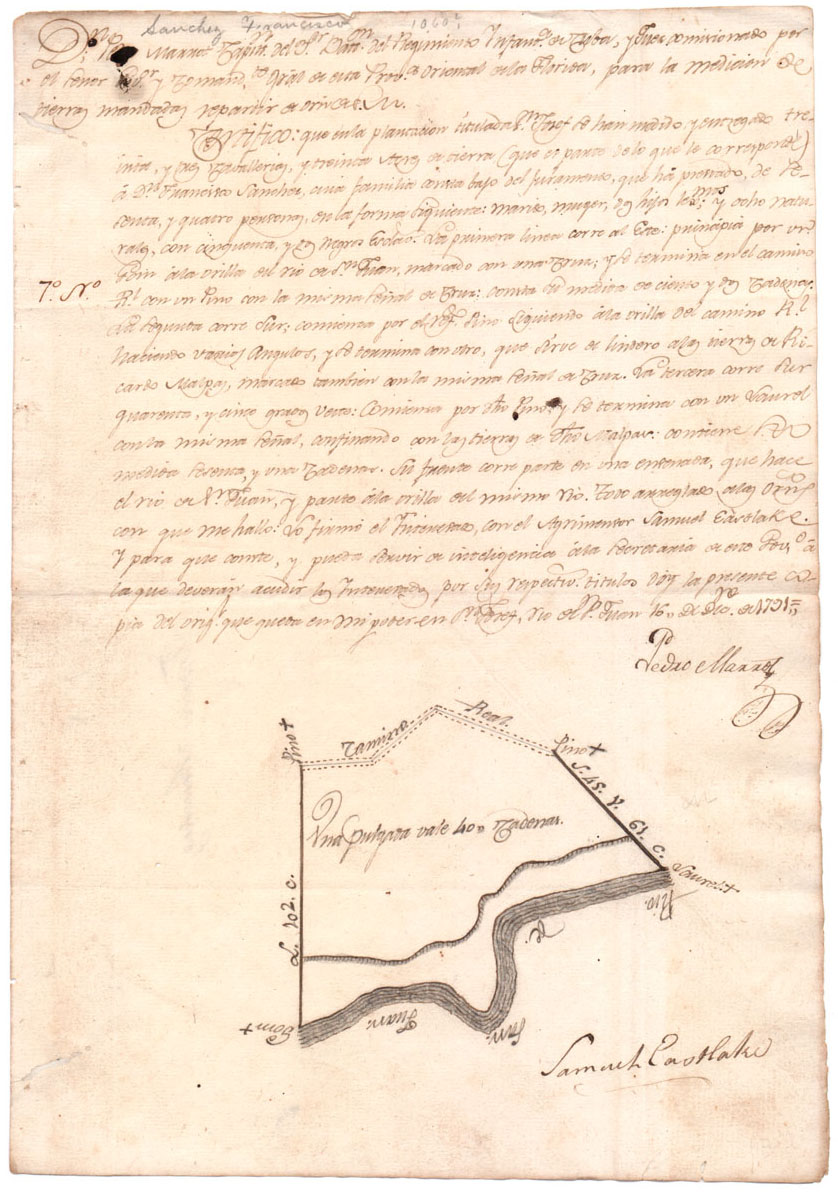 Sanchez Francisco 1060
Dn. Po. Marrot Capitn. del Sr. Batn. del Regimiento Infanta. de Cuba, y Juez comisionado por
el Señor Gobr. y Comandte. Gral de esta Prova. Oriental de la Florida, para la medicion de
tierras mandadas repartir de orden de S. M.
Certifico: que en la plantacion titulada Sn. Josef se han medido, y entregado tre-
inta, y tres Cavallerias, y treinta Acres de tierra (que es parte de lo que le corresponde)
á Dn. Francisco Sanchez, cuia familia consta bajo del Juramento, que há prestado, de se-
senta, y quatro personas, en la forma siguiente: marido, muger, dos hijos legmos. y ocho natu-
rales, con cinquenta, y dos Negros Esclavos. La primera linea corre al Este: principia por un
Gom á la orilla del rio de Sn. Juan, marcado con una Cruz; y se termina en el camino
7º. Nº.
Rl. con un Pino con la misma señal de Cruz: consta su medida de ciento y dos Cadenas.
La segunda corre Sur; comienza por el ref. Pino siguiendo á la orilla del camino Rl.
haciendo varios Angulos, y se termina con otro, que sirve de lindero á las tierras de Ri-
cardo Malpas, marcado tambien con la misma señal de Cruz. La tercera corre Sur
quarenta, y cinco grados Veste: Comienza por dho Pino, y se termina con un Laurel
con la misma señal, confinando con las tierras de dho Malpas: contiene su
medida sesenta, y una Cadenas. Su frente corre parte en una ensenada, que hace
el rio de Sn. Juan, y parte á la orilla del mismo rio. Todo arreglado á las Ordns.
con que me hallo: Lo firmó el Interesado, con el Agrimensor Samuel Eastlake.
Y para que conste, y pueda servir de inteligencia á la Secretaria de este Govno. á
la que deverán acudir los Interesados por sus respectivs. titulos doy la presente co-
pia del origl. que queda en mi poder en Sn. Josef, rio de Sn. Juan 16,, de Dice. de 1791=
Po.
Pedro Marrot
Pino+ Camino Real Pino+
S. 45. V. 61. C.
Una pulgada vale 40,, Cadenas.
L. 102. C.
Laurel+
Rio. D. Sn. Juan.
Gom+
Samuel Eastlake